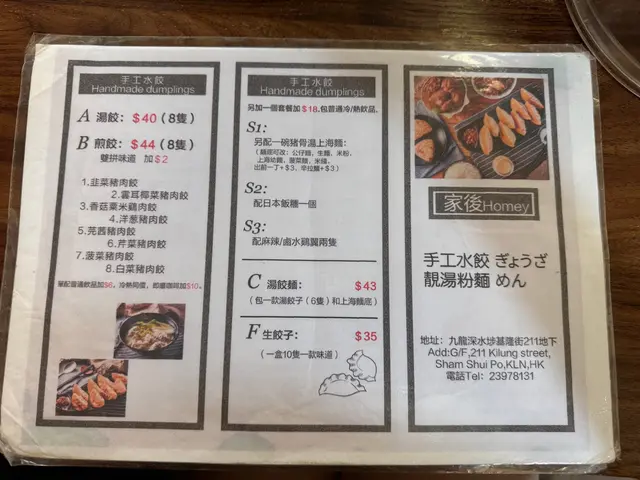 手工水餃
Handmade dumplings
A 湯餃: $40 (8隻)
B 煎餃: $44 (8隻)
雙拼味道 加$2
1.韭菜豬肉餃
2.雲耳椰菜豬肉餃
3.香菇粟米鷄肉餃
4.洋葱豬肉餃
5.芫茜豬肉餃
6.芹菜豬肉餃
7.菠菜豬肉餃
8.白菜豬肉餃
單配普通飲品加$6，冷熱同價，即磨咖啡加$10。
手工水餃
Handmade dumplings
另加一個套餐加$18，包普通冷/熱飲品。
S1:
另配一碗豬骨湯上海麵:
(麵底可改: 公仔麵，生麵，米粉，
上海幼麵，菠菜麵，米線，
出前一丁+$3，辛拉麵+$3)
S2:
配日本飯糰一個
S3:
配麻辣/鹵水鷄翼兩隻
C 湯餃麵: $43
(包一款湯餃子(6隻)和上海麵底)
F 生餃子: $35
(一盒10隻一款味道)
家後Homey
手工水餃 ぎょうざ
靚湯粉麵 めん
地址: 九龍深水埗基隆街211地下
Add:G/F,211 Kilung street,
Sham Shui Po,KLN,HK
電話Tel: 23978131